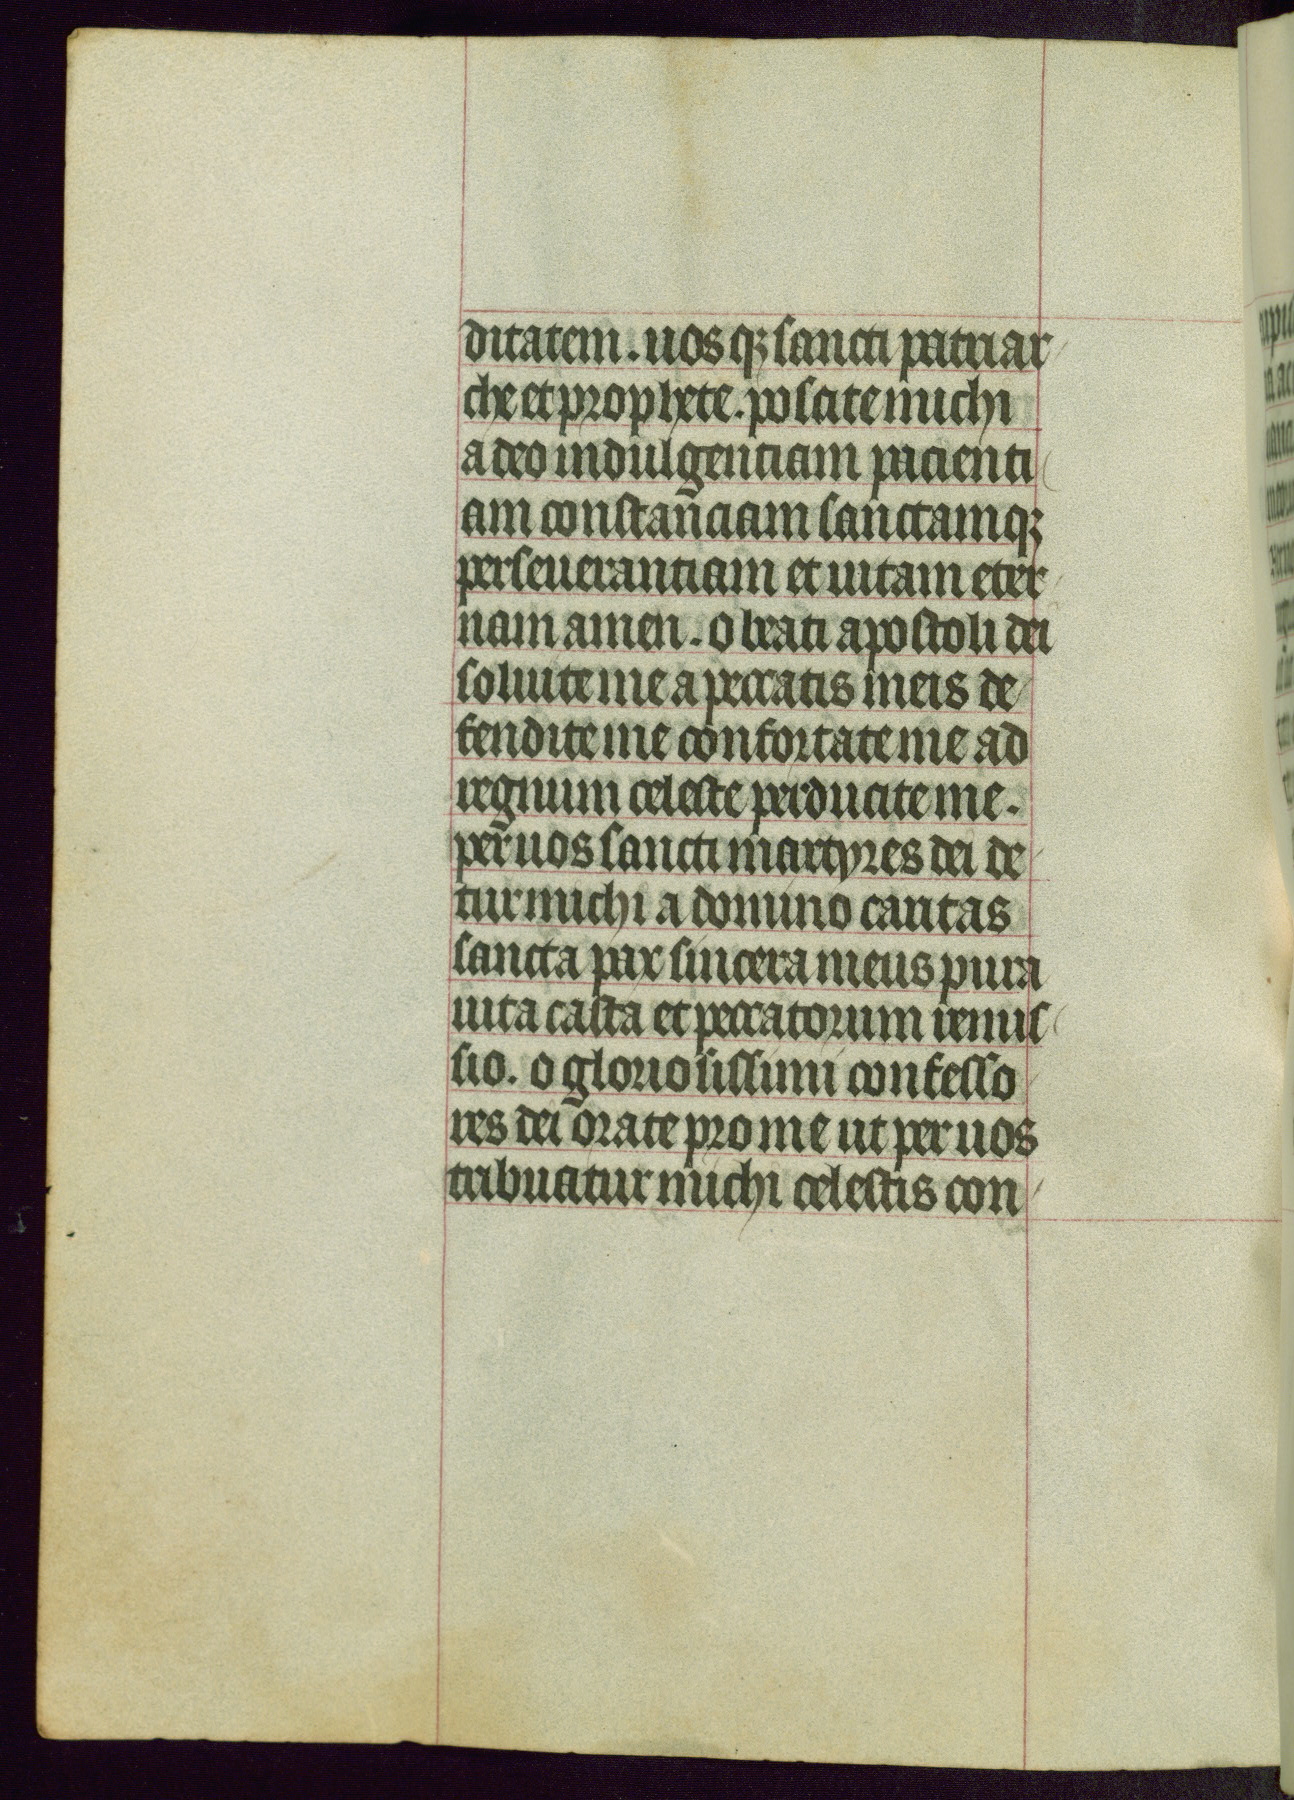 ditatem. uos qꝫ sancti patriar
che et prophete. poscite michi
a deo indulgentiam pacienti
am constanciam sanctamqꝫ
perseuerantiam et uitam eter
nam amen. o beati apostoli dei
soluite me a peccatis meis de
fendite me confortate me ad
regnum celeste perducite me.
per uos sancti martyres dei de
tur michi a domino caritas
sancta pax sincera mens pura
uita casta et peccatorum remis
sio. o gloriosissimi confesso
res dei orate pro me ut per uos
tribuatur michi celestis con